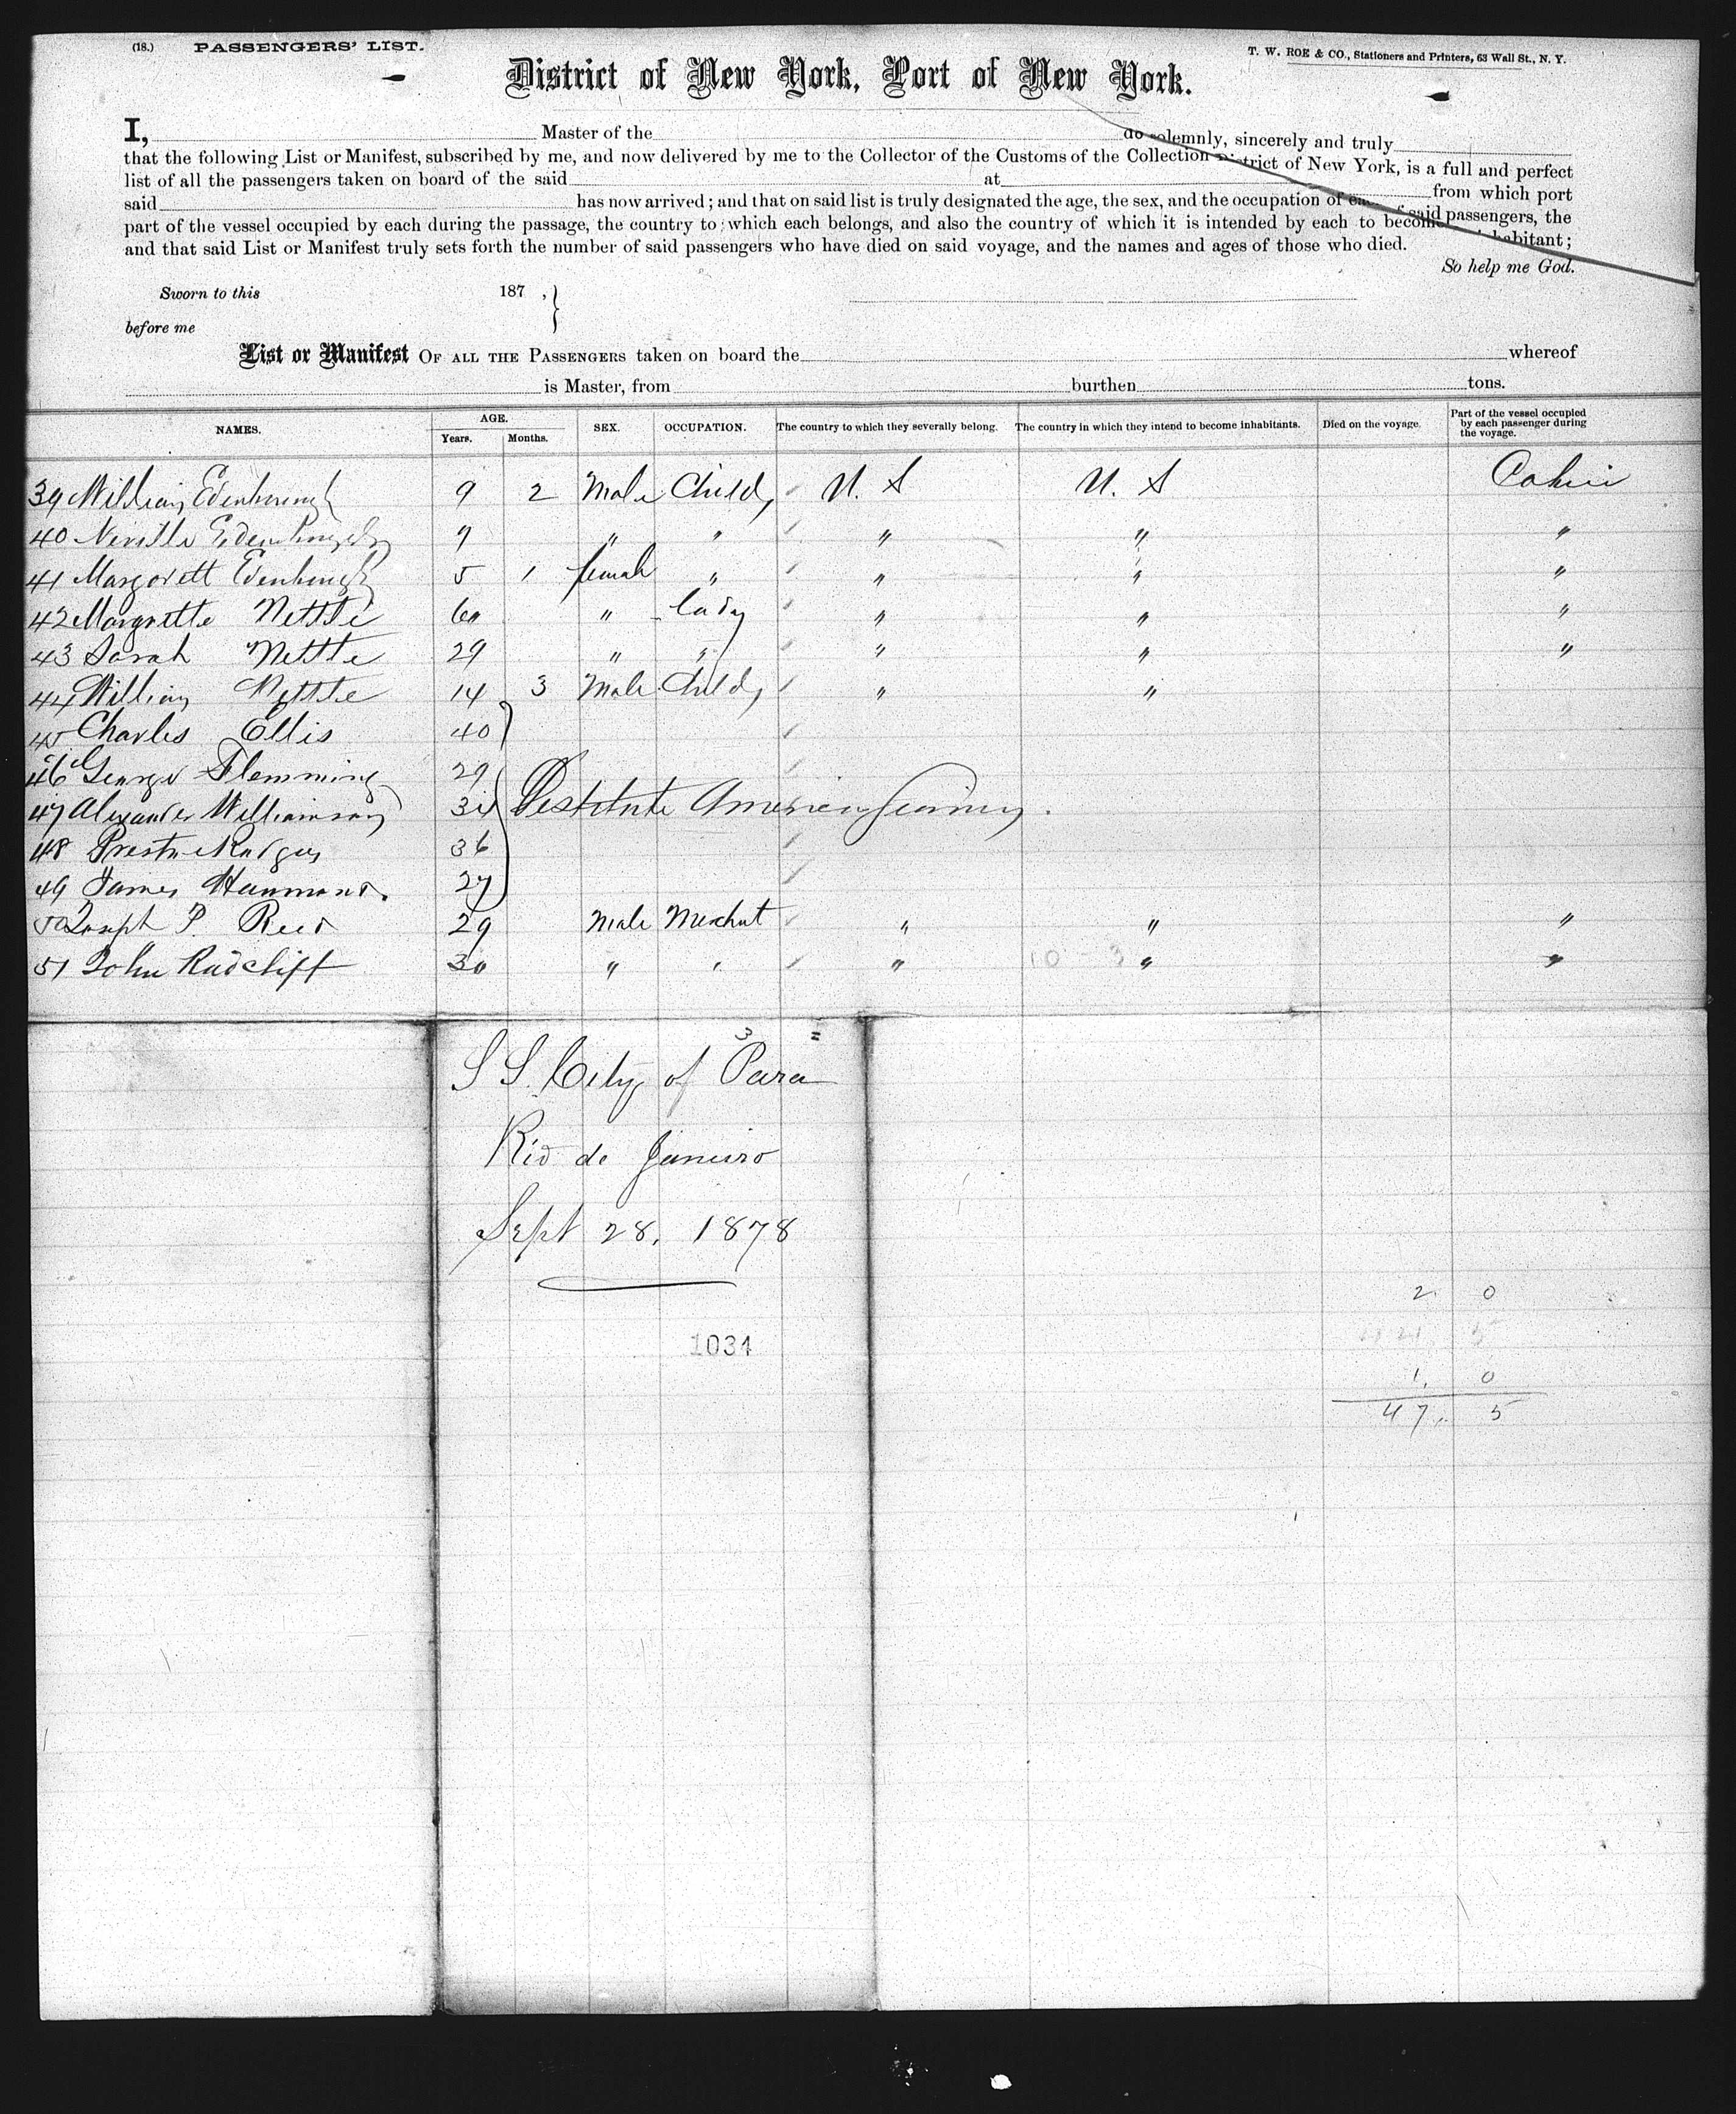 (18.) PASSENGERS' LIST.
T. W. ROE & CO., Stationers and Printers, 63 Wall St., N. Y.
District of New York, Port of New York.
I, Master of the do solemnly, sincerely and truly
that the following List or Manifest, subscribed by me, and now delivered by me to the Collector of the Customs of the Collection District of New York, is a full and perfect
list of all the passengers taken on board of the said at from which port
said has now arrived; and that on said list is truly designated the age, the sex, and the occupation of each of said passengers, the
part of the vessel occupied by each during the passage, the country to which each belongs, and also the country of which it is intended by each to become inhabitant;
and that said List or Manifest truly sets forth the number of said passengers who have died on said voyage, and the names and ages of those who died.
So help me God.
Sworn to this 187 , }
before me
List or Manifest OF ALL THE PASSENGERS taken on board the whereof
is Master, from burthen tons.
NAMES. AGE. Years. Months. SEX. OCCUPATION. The country to which they severally belong. The country in which they intend to become inhabitants. Died on the voyage. Part of the vessel occupied by each passenger during the voyage.
39 William 9 2 Male Child U. S U. S Cabin
40 Neville 7 " " " " "
41 Margorett 5 1 female " " " "
42 Margrette Nettle 60 " Lady " " "
43 Sarah Nettle 29 " " " " "
44 William Nettle 14 3 Male Child " "
45 Charles Ellis 40
46 George Flemming 29
47 Alexander Williamson Destitute American Seaman.
48 36
49 James Hammond. 27
50 Joseph P. Reed 29 Male Merchnt " " "
51 John Radcliff 30 " " " " "
S S. City of Para
Rio de Janeiro
Sept 28, 1878
1034
2. 0
1. 0
47. 5